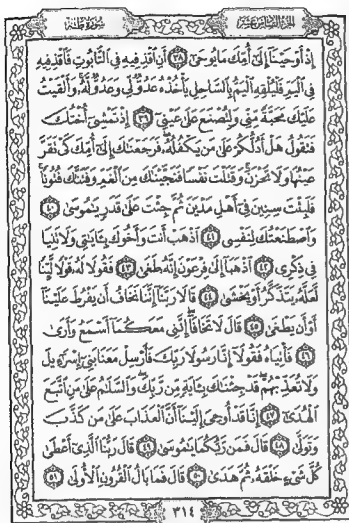 الجزء السادس عشر
سورة طه
إِذْ أَوْحَيْنَا إِلَىٰ أُمِّكَ مَا يُوحَىٰ ٣٨ أَنِ اقْذِفِيهِ فِي التَّابُوتِ فَاقْذِفِيهِ
فِي الْيَمِّ فَلْيُلْقِهِ الْيَمُّ بِالسَّاحِلِ يَأْخُذْهُ عَدُوٌّ لِّي وَعَدُوٌّ لَّهُ ۚ وَأَلْقَيْتُ
عَلَيْكَ مَحَبَّةً مِّنِّي وَلِتُصْنَعَ عَلَىٰ عَيْنِي ٣٩ إِذْ تَمْشِي أُخْتُكَ
فَتَقُولُ هَلْ أَدُلُّكُمْ عَلَىٰ مَن يَكْفُلُهُ ۖ فَرَجَعْنَاكَ إِلَىٰ أُمِّكَ كَيْ تَقَرَّ
عَيْنُهَا وَلَا تَحْزَنَ ۚ وَقَتَلْتَ نَفْسًا فَنَجَّيْنَاكَ مِنَ الْغَمِّ وَفَتَنَّاكَ فُتُونًا ۚ
فَلَبِثْتَ سِنِينَ فِي أَهْلِ مَدْيَنَ ثُمَّ جِئْتَ عَلَىٰ قَدَرٍ يَا مُوسَىٰ ٤٠
وَاصْطَنَعْتُكَ لِنَفْسِي ٤١ اذْهَبْ أَنتَ وَأَخُوكَ بِآيَاتِي وَلَا تَنِيَا
فِي ذِكْرِي ٤٢ اذْهَبَا إِلَىٰ فِرْعَوْنَ إِنَّهُ طَغَىٰ ٤٣ فَقُولَا لَهُ قَوْلًا لَّيِّنًا
لَّعَلَّهُ يَتَذَكَّرُ أَوْ يَخْشَىٰ ٤٤ قَالَا رَبَّنَا إِنَّنَا نَخَافُ أَن يَفْرُطَ عَلَيْنَا
أَوْ أَن يَطْغَىٰ ٤٥ قَالَ لَا تَخَافَا ۖ إِنَّنِي مَعَكُمَا أَسْمَعُ وَأَرَىٰ
٤٦ فَأْتِيَاهُ فَقُولَا إِنَّا رَسُولَا رَبِّكَ فَأَرْسِلْ مَعَنَا بَنِي إِسْرَائِيلَ
وَلَا تُعَذِّبْهُمْ ۖ قَدْ جِئْنَاكَ بِآيَةٍ مِّن رَّبِّكَ ۖ وَالسَّلَامُ عَلَىٰ مَنِ اتَّبَعَ
الْهُدَىٰ ٤٧ إِنَّا قَدْ أُوحِيَ إِلَيْنَا أَنَّ الْعَذَابَ عَلَىٰ مَن كَذَّبَ
وَتَوَلَّىٰ ٤٨ قَالَ فَمَن رَّبُّكُمَا يَا مُوسَىٰ ٤٩ قَالَ رَبُّنَا الَّذِي أَعْطَىٰ
كُلَّ شَيْءٍ خَلْقَهُ ثُمَّ هَدَىٰ ٥٠ قَالَ فَمَا بَالُ الْقُرُونِ الْأُولَىٰ ٥١
٣١٤